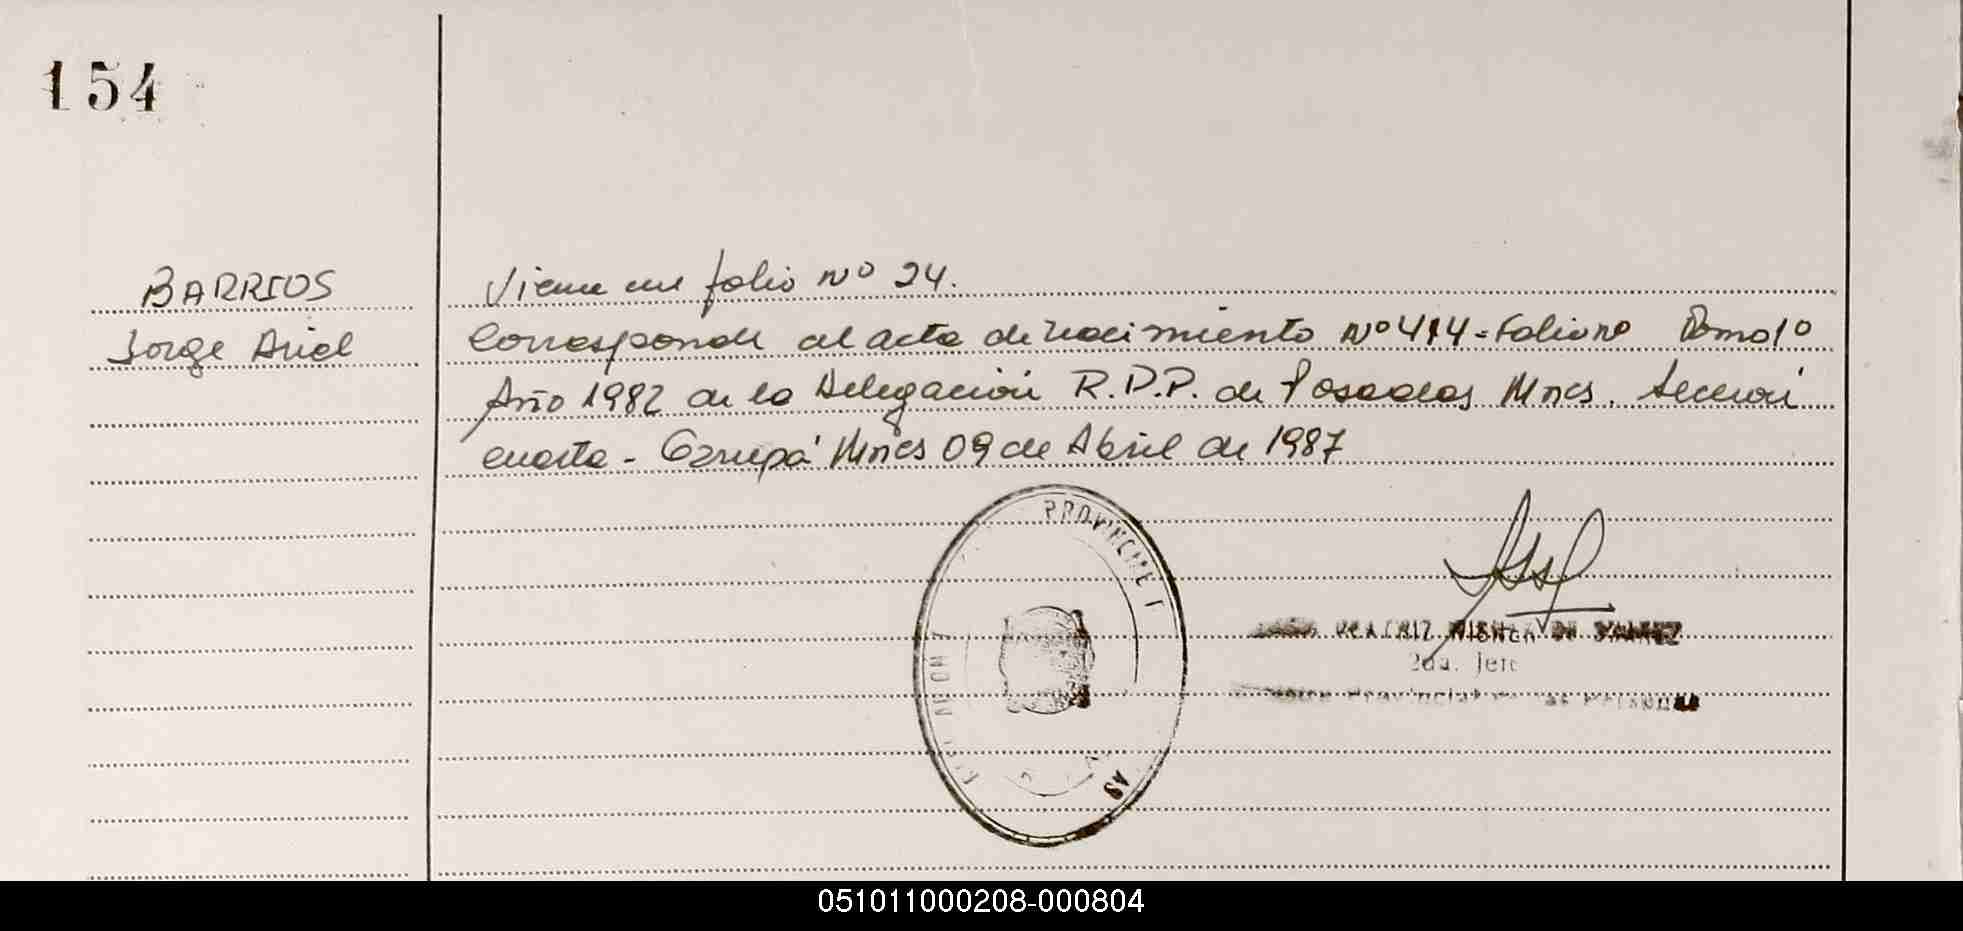 154
BARRIOS
Jorge Ariel
Viene en folio Nº 24.
Corresponde al acta de nacimiento Nº 414 - Folio nº Tomo 1º
Año 1982 de la Delegación R.D.P. de Posadas Mnes. Sección
cuarta - Garupá Mnes 09 de Abril de 1987
PROVINCIAL
BEATRIZ DE
2da. Jefe
Provincial Personas
051011000208-000804